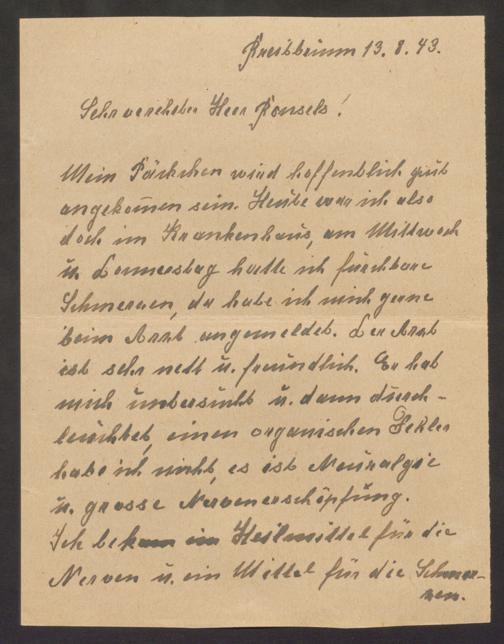 Kreisbeinm 13. 8. 43.
Sehr verehrter Herr Bonsels!
Mein Päckchen wird hoffentlich gut
angekom̄en sein. Heute war ich also
doch im Krankenhaus, am Mittwoch
u. Donnerstag hatte ich furchbare
Schmerzen, da habe ich mich gerne
beim Arzt angemeldet. Der Arzt
ist sehr nett u. freundlich. Er hat
mich untersucht u. dann durch-
leuchtet, einen organischen Fehler
habe ich nicht, es ist Neuralgie
u. grosse Nervenerschöpfung.
Ich bekam ein Heilmittel für die
Nerven u. ein Mittel für die Schmer-
zen.